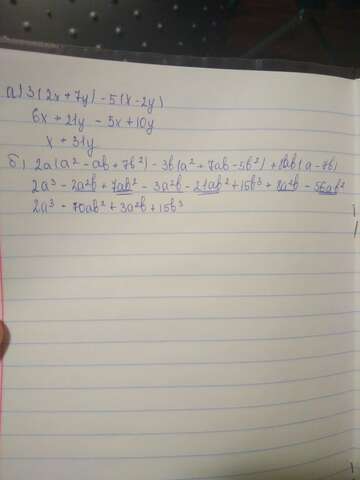 а) 3(2x + 7y) - 5(x - 2y)
6x + 21y - 5x + 10y
x + 31y
б) 2a(a² - ab + 7b²) - 3b(a² + 7ab - 5b²) + 8ab(a - 7b)
2a³ - 2a²b + 7ab² - 3a²b - 21ab² + 15b³ + 8a²b - 56ab²
2a³ - 70ab² + 3a²b + 15b³